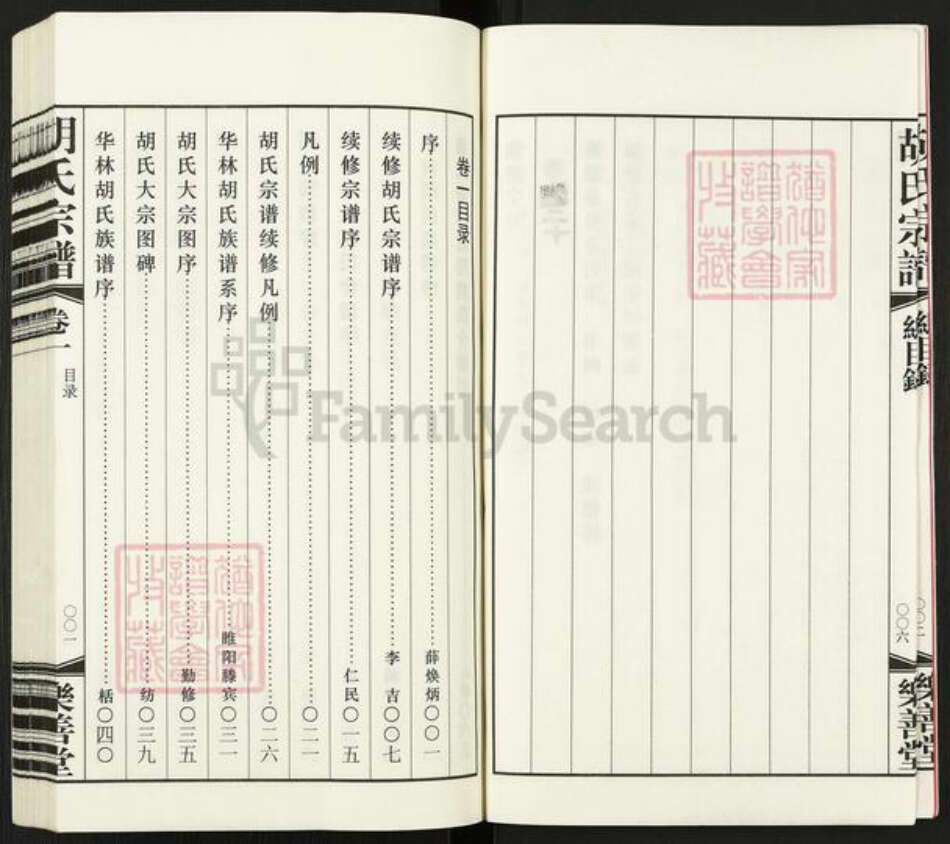 胡氏宗譜
總目錄
〇〇六
樂善堂
卷一目录
序 薛焕炳 〇〇一
续修胡氏宗谱序 李吉 〇〇七
续修宗谱序 仁民 〇一五
凡例 〇二一
胡氏宗谱续修凡例 〇二六
华林胡氏族谱系序 睢阳滕宾 〇三一
胡氏大宗图序 勤修 〇三五
胡氏大宗图碑 纺 〇三九
华林胡氏族谱序 栝 〇四〇
胡氏宗譜
卷一
目录
〇〇一
樂善堂
FamilySearch